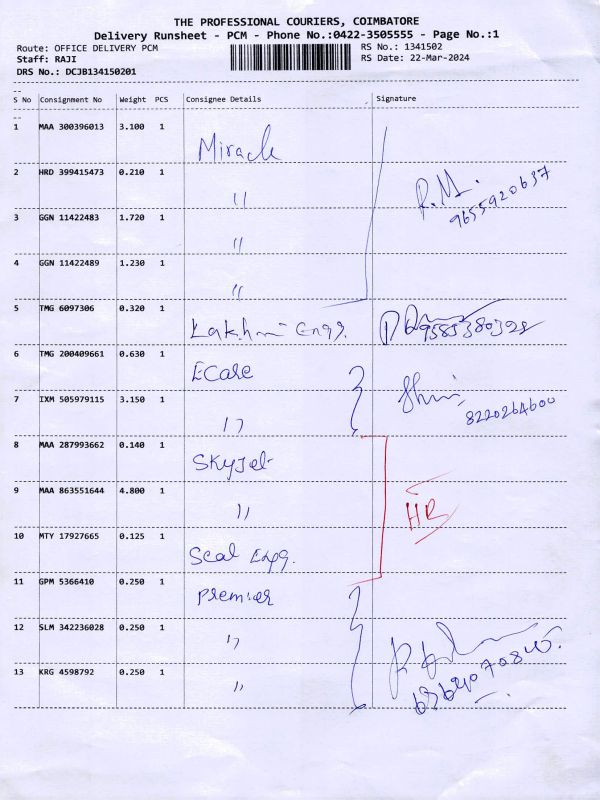 THE PROFESSIONAL COURIERS, COIMBATORE
Delivery Runsheet - PCM - Phone No.:0422-3505555 - Page No.:1
Route: OFFICE DELIVERY PCM RS No.: 1341502
Staff: RAJI RS Date: 22-Mar-2024
DRS No.: DCJB134150201
S No Consignment No Weight PCS Consignee Details Signature
1 MAA 300396013 3.100 1 Miracle
2 HRD 399415473 0.210 1 " R.M. 9655920637
3 GGN 11422483 1.720 1 "
4 GGN 11422489 1.230 1 "
5 TMG 6097306 0.320 1 Lakhmi Engg.
6 TMG 200409661 0.630 1 ECare
7 IXM 505979115 3.150 1 " 8220264600
8 MAA 287993662 0.140 1 SkyJet
9 MAA 863551644 4.800 1 " HB
10 MTY 17927665 0.125 1 Seal Engg.
11 GPM 5366410 0.250 1 Premier
12 SLM 342236028 0.250 1 "
13 KRG 4598792 0.250 1 "